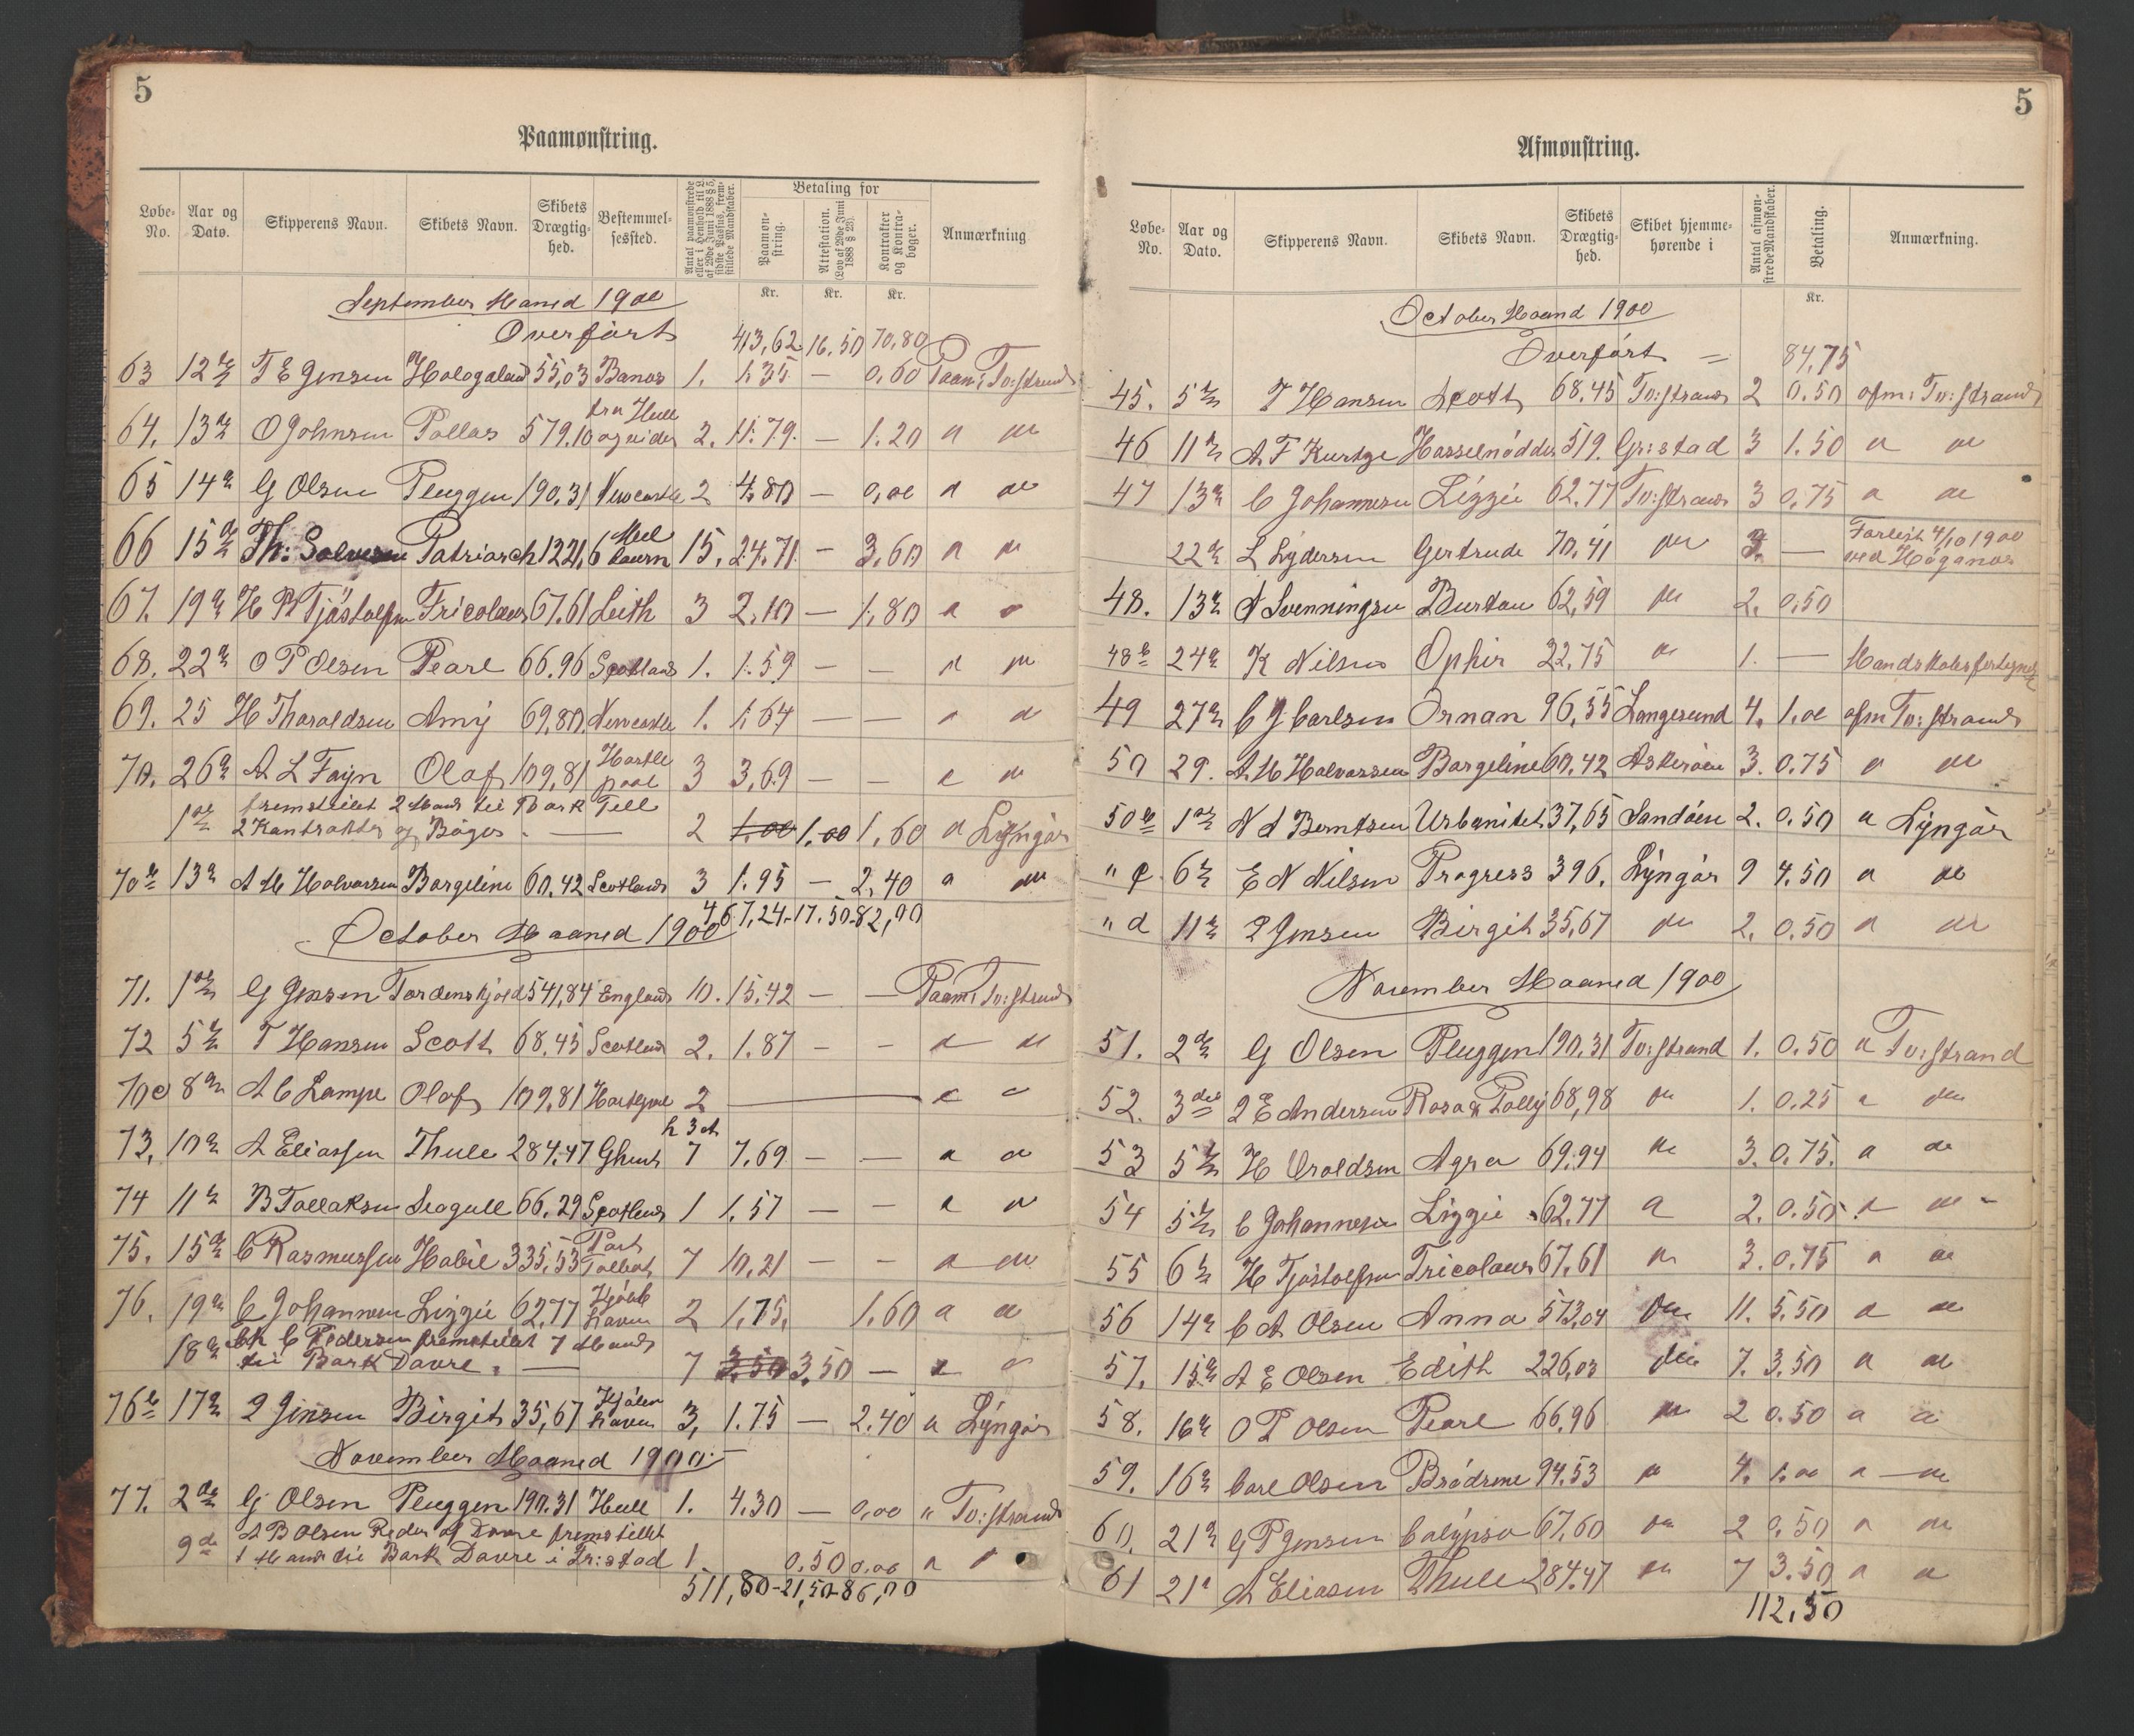 5
Paamønstring.
Løbe-No. Aar og Dato. Skipperens Navn. Skibets Navn. Skibets Drægtighed. Bestemmelsessted. Antal paamønstrede eller i Henhold til L. af 29de Juni 1888 § 5, sidste Passus, fremstillede Mandskaber. Betaling for Paamønstring. Attestation. (Lov af 29de Juni 1888 § 23). Kontrakter og Kontrabøger. Anmærkning
Kr. Kr. Kr.
September Maaned 1900
Overført 413,62 16,50 70,80
63 12te T E Jensen Hologaland 55,03 1. 1.35 — 0,60 Paam: Tv:strand
64. 13de O Johnsen Pallas 579.10 fra Hull og vider 2. 11.79. — 1.20 a de
65 14de G Olsen Pluggen 190.31 Newcastle 2 4.80 — 0,00 a de
66 15de Th: Solversen Patriarch 1221,6 Melbourn 15. 24.71 — 3,60 a de
67. 19de H Tjöstolfsen Tricolaur 67.61 Leith 3 2.10 — 1.80 a a
68. 22de O P Olsen Pearl 66.96 Scotland 1. 1.59 — — a de
69. 25 H Tharaldsen Amy 69,80. Newcastle 1. 1.64 — — a de
70. 26de A L Fayn Olaf 109,81 Hartlepool 3 3,69 — — a de
1ste fremstillet 2 Mand til Bark Tell
2 Kontrakter og Böger. — 2 1,00 1,00 1,60 a Lyngör
70b 13de A M Halvorsen Borgeline 60.42 Scotland 3 1.95 — 2,40 a de
467,24-17.50-82,00
October Maaned 1900
71. 1ste G Jensen Tordenskjold 541,84 England 10. 15.42 — — Paam: Tv:strand
72 5te T Hansen Scott 68.45 Scotland 2. 1.87 — — a de
70c 8de A C Lampe Olaf 109,81 Hartlpool 2 — a a
73, 10de A Eliassen Thule 284.47 Ghent 7 7.69 — — a a
74 11te B Tallaksen Seagull 66.29 Scotland 1 1.57 — — a de
75. 15de C Rasmussen Habil 335,53 Port Talbot 7 10,21 — — a de
76. 19de C Johannesen Lizzie 62,77 2 1,75, 1.60 a a
18de C Pedersen fremstillet 7 Mand
til Bark Davre. — 7 3,50 3,50 — a a
76b 17de Jensen Birgit 35,67 3, 1.75 — 2.40 a Lyngör
November Maaned 1900.
77. 2den G Olsen Pluggen 190.31 Hull 1. 4.30 — 0,00 " Tv:strand
9de A B Olsen Reder af Davre fremstillet
1 Mand til Bark Davre i Fr:stad 1. 0.50 0,00 a
511,80-21,50-86,00
5
Afmønstring.
Løbe-No. Aar og Dato. Skipperens Navn. Skibets Navn. Skibets Drægtighed. Skibet hjemmehørende i Antal afmønstrede Mandskaber. Betaling. Anmærkning.
Kr.
October Maaned 1900
Overført = 84,75
45. 5te T Hansen Scott 68.45 Tv:strand 2 0.50 afm: Tv:strand
46 11te A F Kurtze Hasselnødden 519. Gr:stad 3 1.50 a de
47 13de C Johannesen Lizzie 62.77 Tv:strand 3 0.75 a de
22de L Lydersen Gertrude 70,41 de 3. — Forlist 4/10 1900 ved Höganas
48. 13de A Svenningsen Burtau 62,59 de 2. 0,50
48b 24de K Nilsen Ophir 22,75 de 1. —
49 27de C J Carlsen Ornan 96,55 Langesund 4. 1.00 afm Tv:strand
50 29. A M Halvorsen Borgeline 60.42 Askeröen 3. 0.75 a de
50b 1ste N A Berntsen Urbanitet 37,65 Sandöen 2. 0.50 a Lyngör
" c 6te E N Nilsen Progress 396. Lyngör 9 4.50 a de
" d 11te Jensen Birgit 35,67 de 2. 0.50 a de
November Maaned 1900
51. 2den G Olsen Pluggen 190.31 Tv:strand 1. 0.50 a Tv:strand
52. 3die E Andersen Rosa & Polly 68,98 de 1. 0.25 a de
53 5te H Uroldsen Agra 69.94 de 3. 0.75. a de
54 5te C Johannesen Lizzie 62.77 a 2. 0.50 a de
55 6te H Tjöstolfsen Tricolaur 67.61 de 3. 0.75 a de
56 14de C A Olsen Anna 573,04 de 11. 5.50 a de
57. 15de A E Olsen Edith 226,03 de 7. 3.50 a de
58. 16de O P Olsen Pearl 66.96 de 2 0.50 a a
59. 16de Carl Olsen Brödrene 94.53 de 4. 1.00 a de
60. 21de G P Jensen Calypso 67.60 de 2 0,50 a de
61 21de A Eliasen Thule 284.47 de 7 3.50 a a
112.50